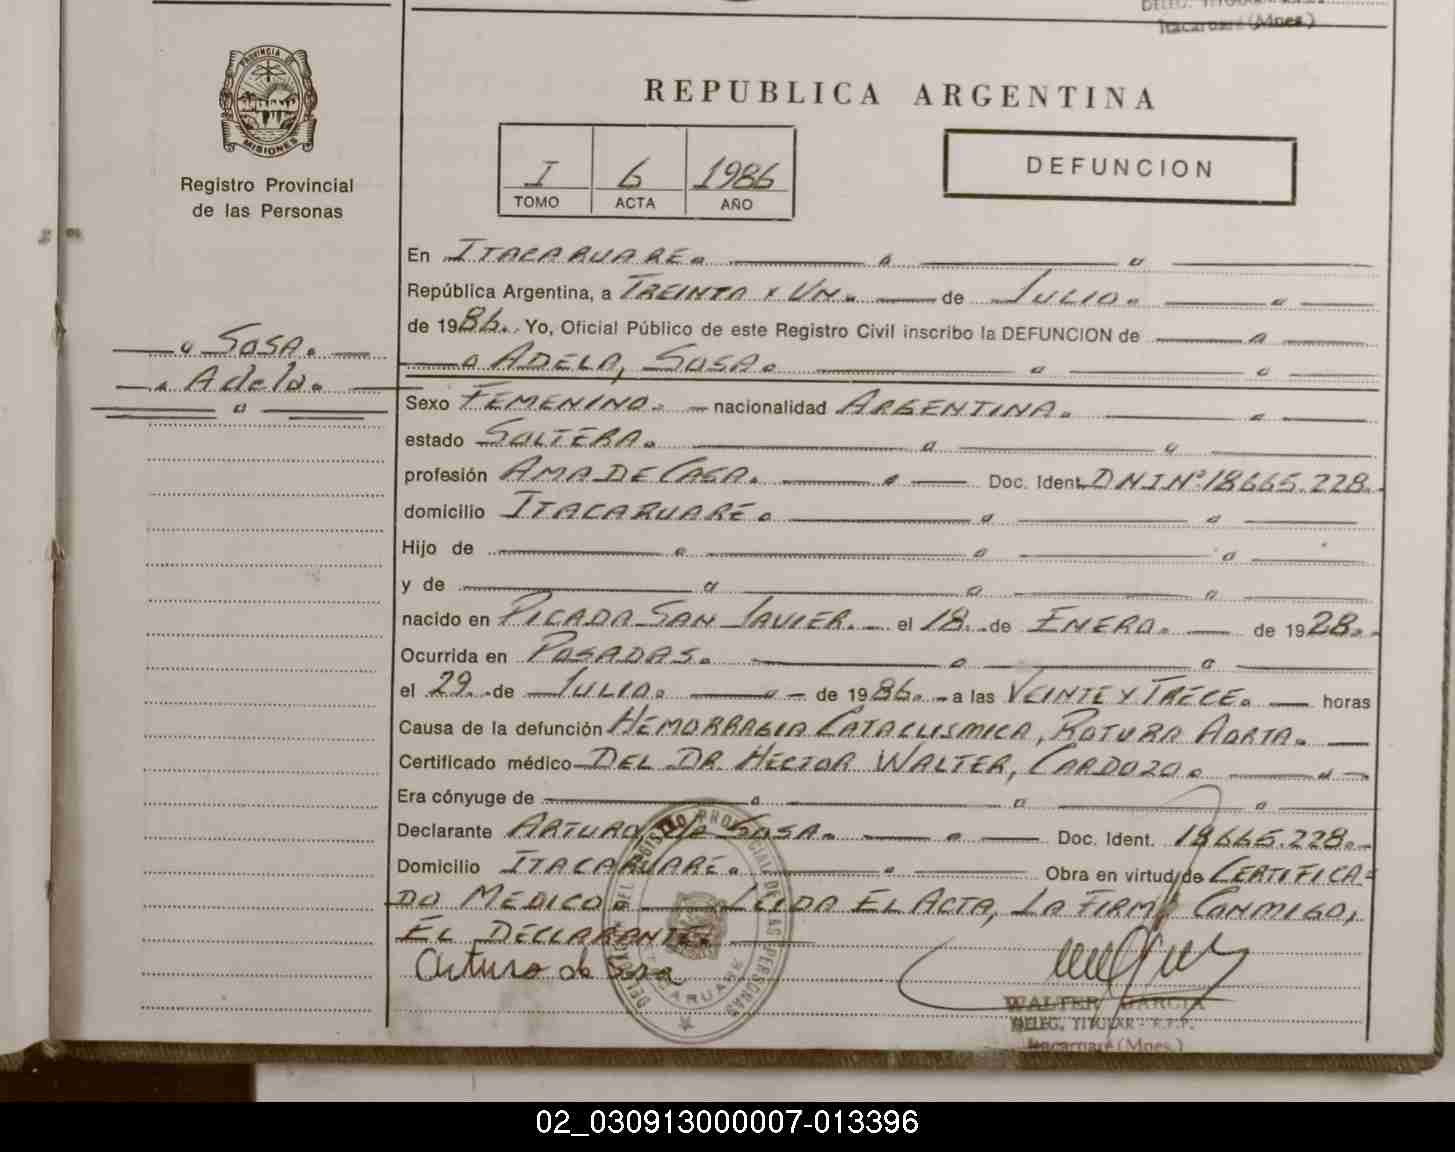 Itacaruaré (Mnes.)
PROVINCIA DE
MISIONES
Registro Provincial
de las Personas
REPUBLICA ARGENTINA
I 6 1986
TOMO ACTA AÑO
DEFUNCION
En ITACARUARE.
República Argentina, a TREINTA Y UN. de JULIO.
de 1986. Yo, Oficial Público de este Registro Civil inscribo la DEFUNCION de
ADELA, SOSA.
SOSA.
Adela.
Sexo FEMENINO. nacionalidad ARGENTINA.
estado SOLTERA.
profesión AMA DE CASA. Doc. Ident. DNI Nº 18665.228.
domicilio ITACARUARÉ.
Hijo de
y de
nacido en PICADA SAN JAVIER. el 18. de ENERO. de 1928.
Ocurrida en POSADAS.
el 29. de JULIO. de 1986. a las VEINTE Y TRECE. horas
Causa de la defunción HEMORRAGIA CATACLISMICA, ROTURA AORTA.
Certificado médico DEL DR HECTOR WALTER, CARDOZO.
Era cónyuge de
Declarante ARTURO DA SOSA. Doc. Ident. 18665.228.
Domicilio ITACARUARE. Obra en virtud de CERTIFICA=
DO MEDICO. LEIDA EL ACTA, LA FIRMA CONMIGO,
EL DECLARANTE.
Arturo da Sosa
WALTER GARCIA
DELEG. TITULAR - R.P.P.
Itacaruaré (Mnes.)
DEL REGISTRO PROVINCIAL DE LAS PERSONAS
ITACARUARE
02_030913000007-013396